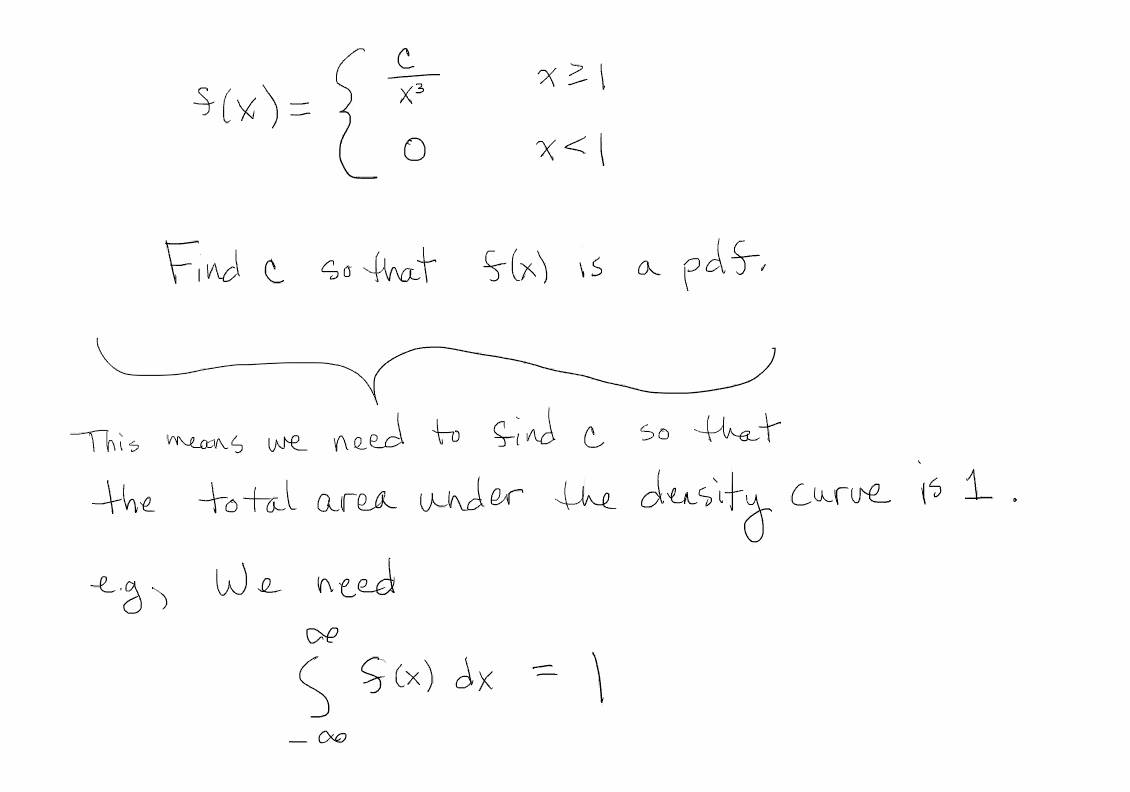 f(x) = { c/x³   x ≥ 1
0   x < 1
Find c so that f(x) is a pdf.
This means we need to find c so that
the total area under the density curve is 1.
e.g, We need
∫_{-∞}^{∞} f(x) dx = 1